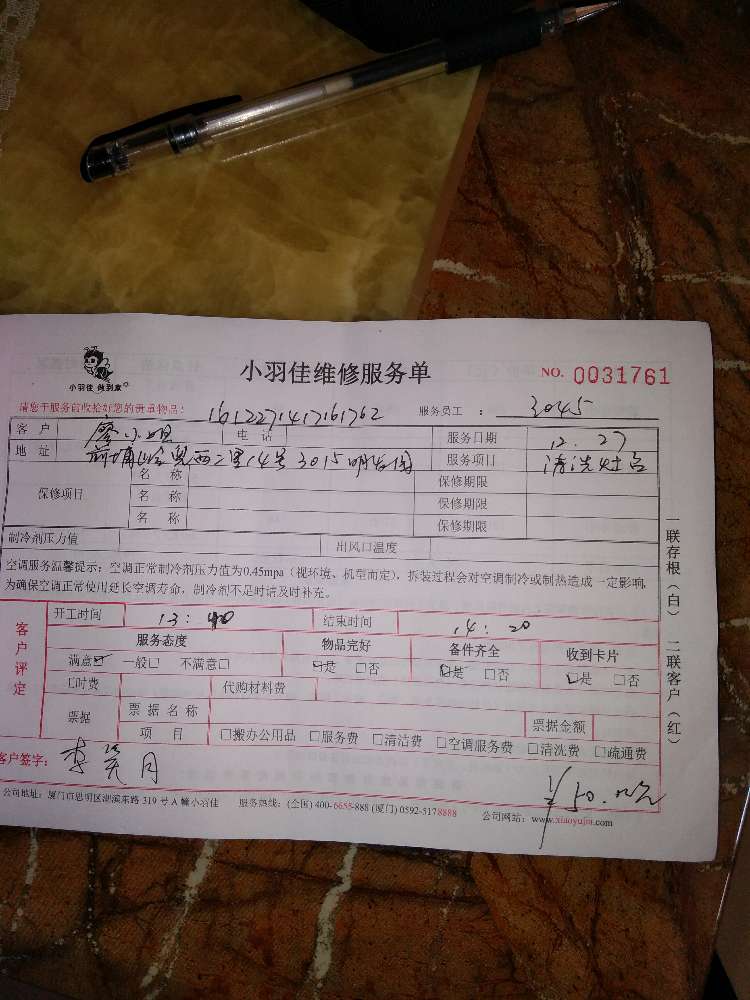 小羽佳 做到家
小羽佳维修服务单
NO. 0031761
请您于服务前收拾好您的贵重物品： 1612271417161762 服务员工 ： 3045
客 户 廖小姐 电 话 服务日期 12.27
地 址 前埔 西二里14号3015明发园 服务项目 清洗灶台
保修项目 名 称 保修期限
名 称 保修期限
名 称 保修期限
制冷剂压力值 出风口温度
空调服务温馨提示：空调正常制冷剂压力值为0.45mpa（视环境、机型而定），拆装过程会对空调制冷或制热造成一定影响，
为确保空调正常使用延长空调寿命，制冷剂不足时请及时补充。
客户评定
开工时间 13：40 结束时间 14：20
服务态度 物品完好 备件齐全 收到卡片
满意☑ 一般□ 不满意□ ☑是 □否 ☑是 □否 ☑是 □否
□时费 代购材料费
票据 票据名称 票据金额
项 目 □搬办公用品 □服务费 □清洁费 □空调服务费 □清洗费 □疏通费
客户签字： 李 月 ¥50.00元
公司地址：厦门市思明区湖滨东路 319 号 A 幢小羽佳 服务热线：(全国) 400-6658-888 (厦门) 0592-5178888 公司网站：www.xiaoyujia.com
一联存根（白） 二联客户（红）